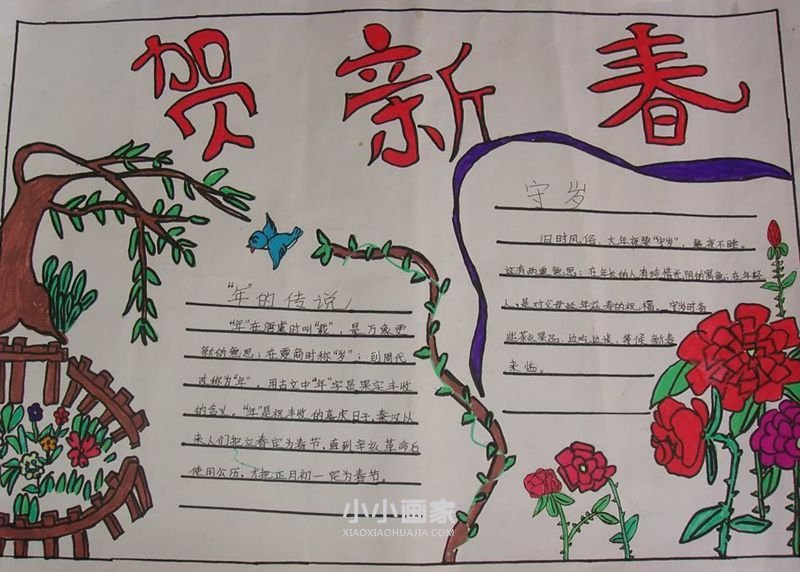 贺新春
"年"的传说
"年"在唐虞时叫"载"，是万象更
新的意思；在夏商时称"岁"；到周代
改称为"年"。用古文中"年"字是果实丰收
的含义。"年"是祝丰收的喜庆日子，秦汉以
来人们把立春定为春节，直到辛亥革命后
使用公历，才把正月初一定为春节。
守岁
旧时风俗，大年夜要"守岁"，整夜不睡。
这有两重意思：在年长的人有珍惜光阴的意思；在年轻
人，是对父母延年益寿的祝福。守岁时备
些茶点果品，边吃边谈，等候新春
来临。
小小画家
XIAOXIAOHUAJIA.COM